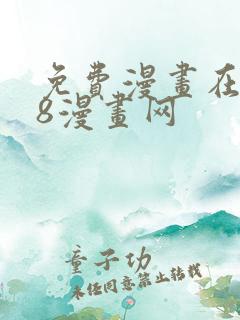 免費漫畫在
8漫畫网
童子功
未经同意禁止转载